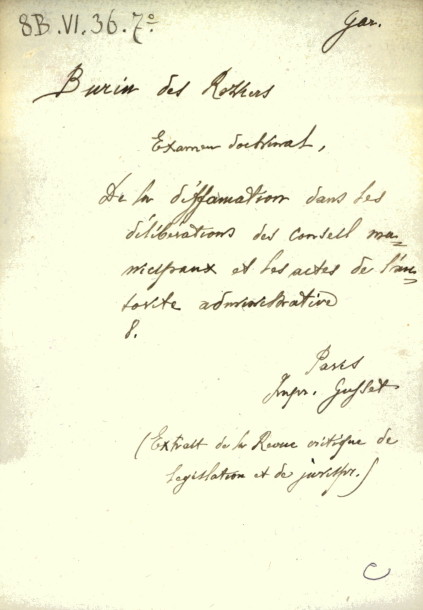 8B.VI.36.7º
Gar.
Burin des Roziers
Examen doctrinal,
De la diffamation dans les
délibérations des conseil mu-
nicipaux et les actes de l'au-
torité administrative
8.
Paris
Impr. Gusset
(Extrait de la Revue critique de
législation et de jurispr.)
C